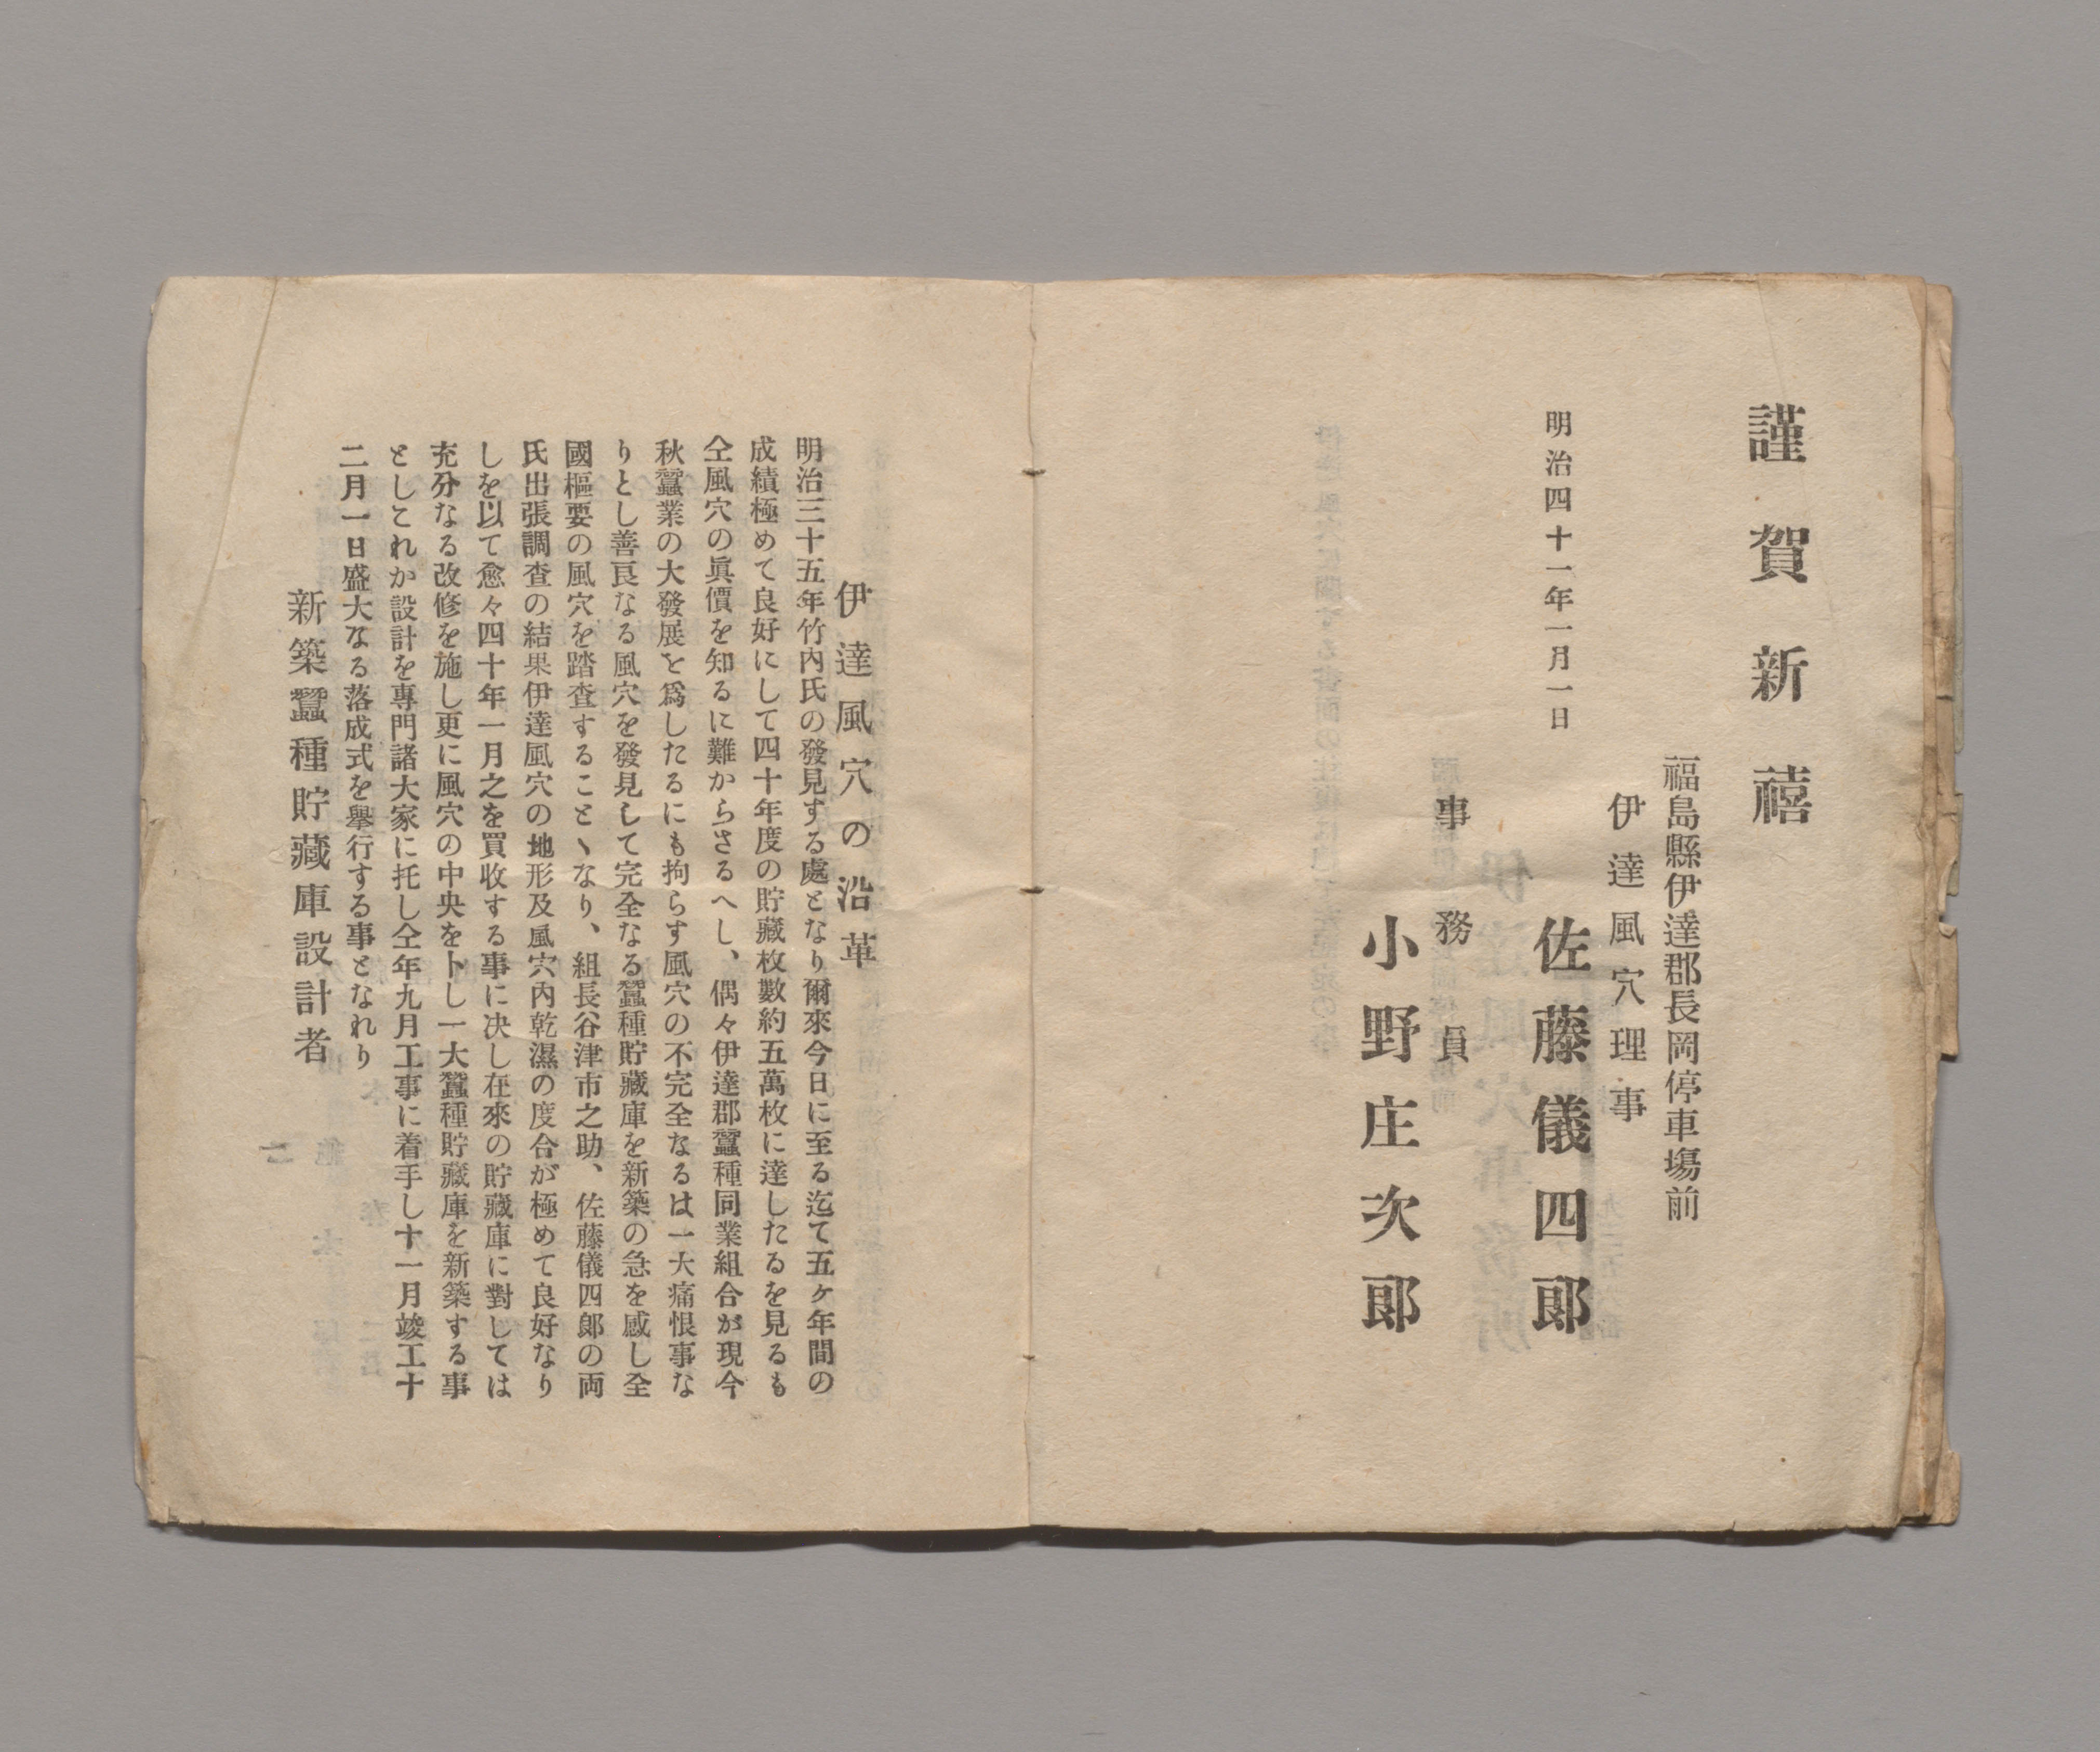 謹賀新禧
福島縣伊達郡長岡停車塲前
伊達風穴理事
明治四十一年一月一日
佐藤儀四郎
事務員
小野庄次郎
伊達風穴の沿革
明治三十五年竹内氏の發見する處となり爾來今日に至る迄て五ヶ年間の
成績極めて良好にして四十年度の貯藏枚數約五萬枚に達したるを見るも
仝風穴の眞價を知るに難からさるへし、偶々伊達郡蠶種同業組合が現今
秋蠶業の大發展を爲したるにも拘らす風穴の不完全なるは一大痛恨事な
りとし善良なる風穴を發見して完全なる蠶種貯藏庫を新築の急を感し全
國樞要の風穴を踏査することヽなり、組長谷津市之助、佐藤儀四郎の両
氏出張調査の結果伊達風穴の地形及風穴内乾濕の度合が極めて良好なり
しを以て愈々四十年一月之を買收する事に决し在來の貯藏庫に對しては
充分なる改修を施し更に風穴の中央を卜し一大蠶種貯藏庫を新築する事
としこれか設計を專門諸大家に托し仝年九月工事に着手し十一月竣工十
二月一日盛大なる落成式を擧行する事となれり
新築蠶種貯藏庫設計者